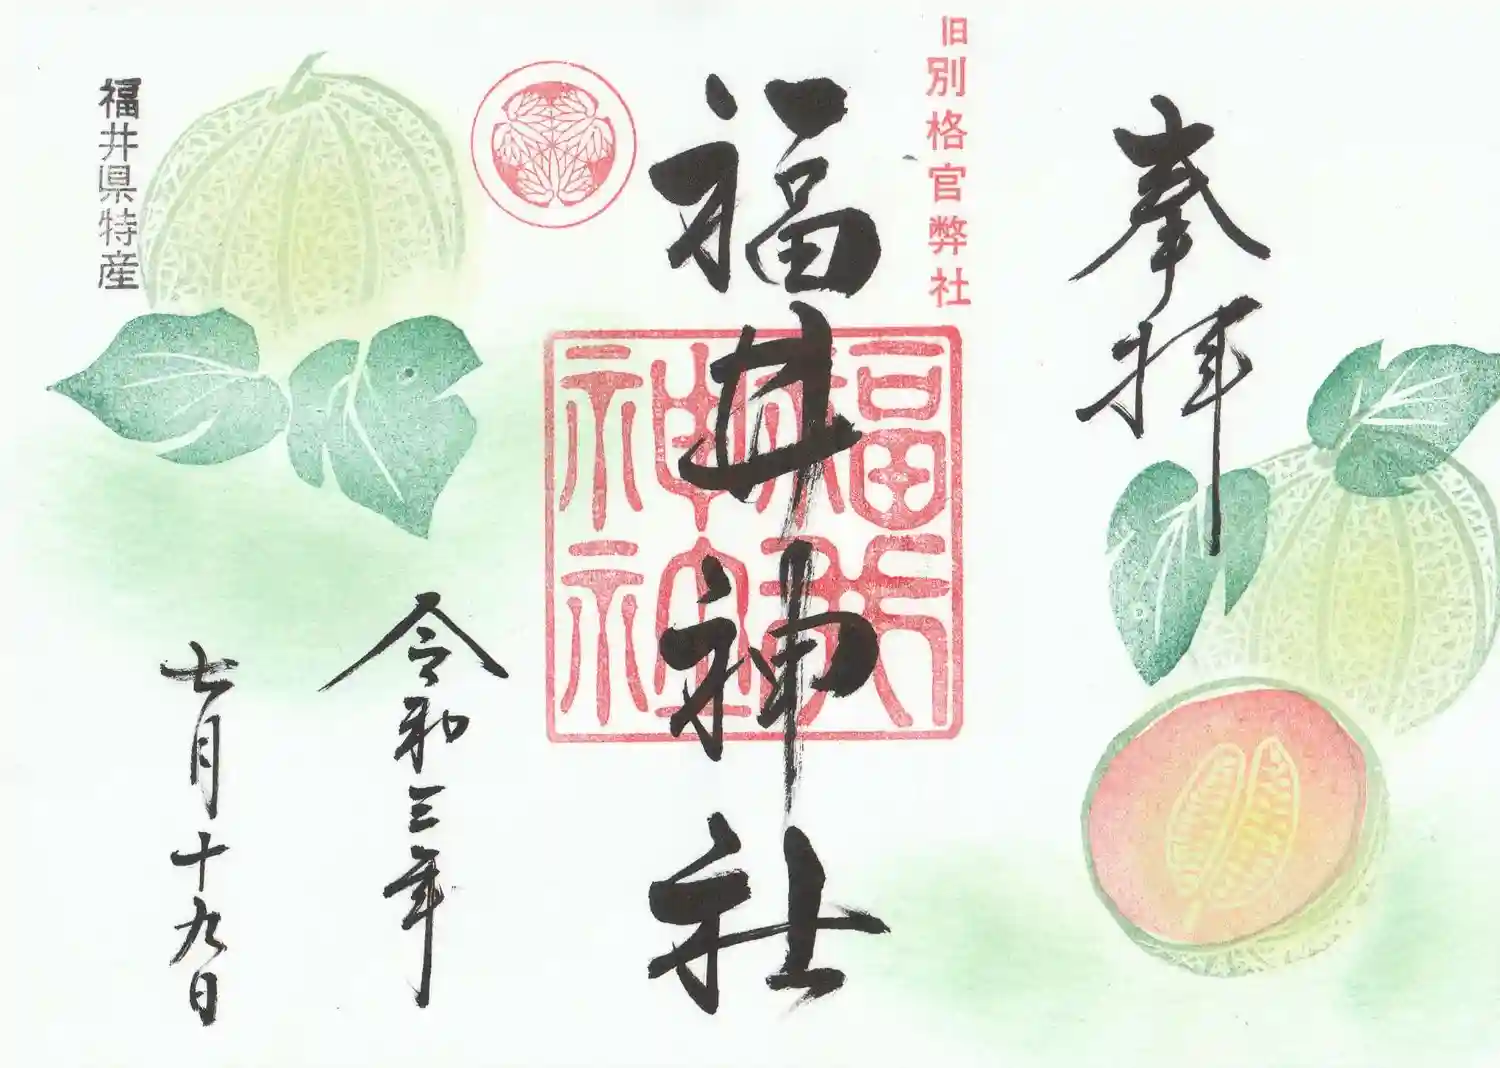 奉拝
旧別格官弊社
福井神社
福井神社神璽
令和三年
七月十九日
福井県特産